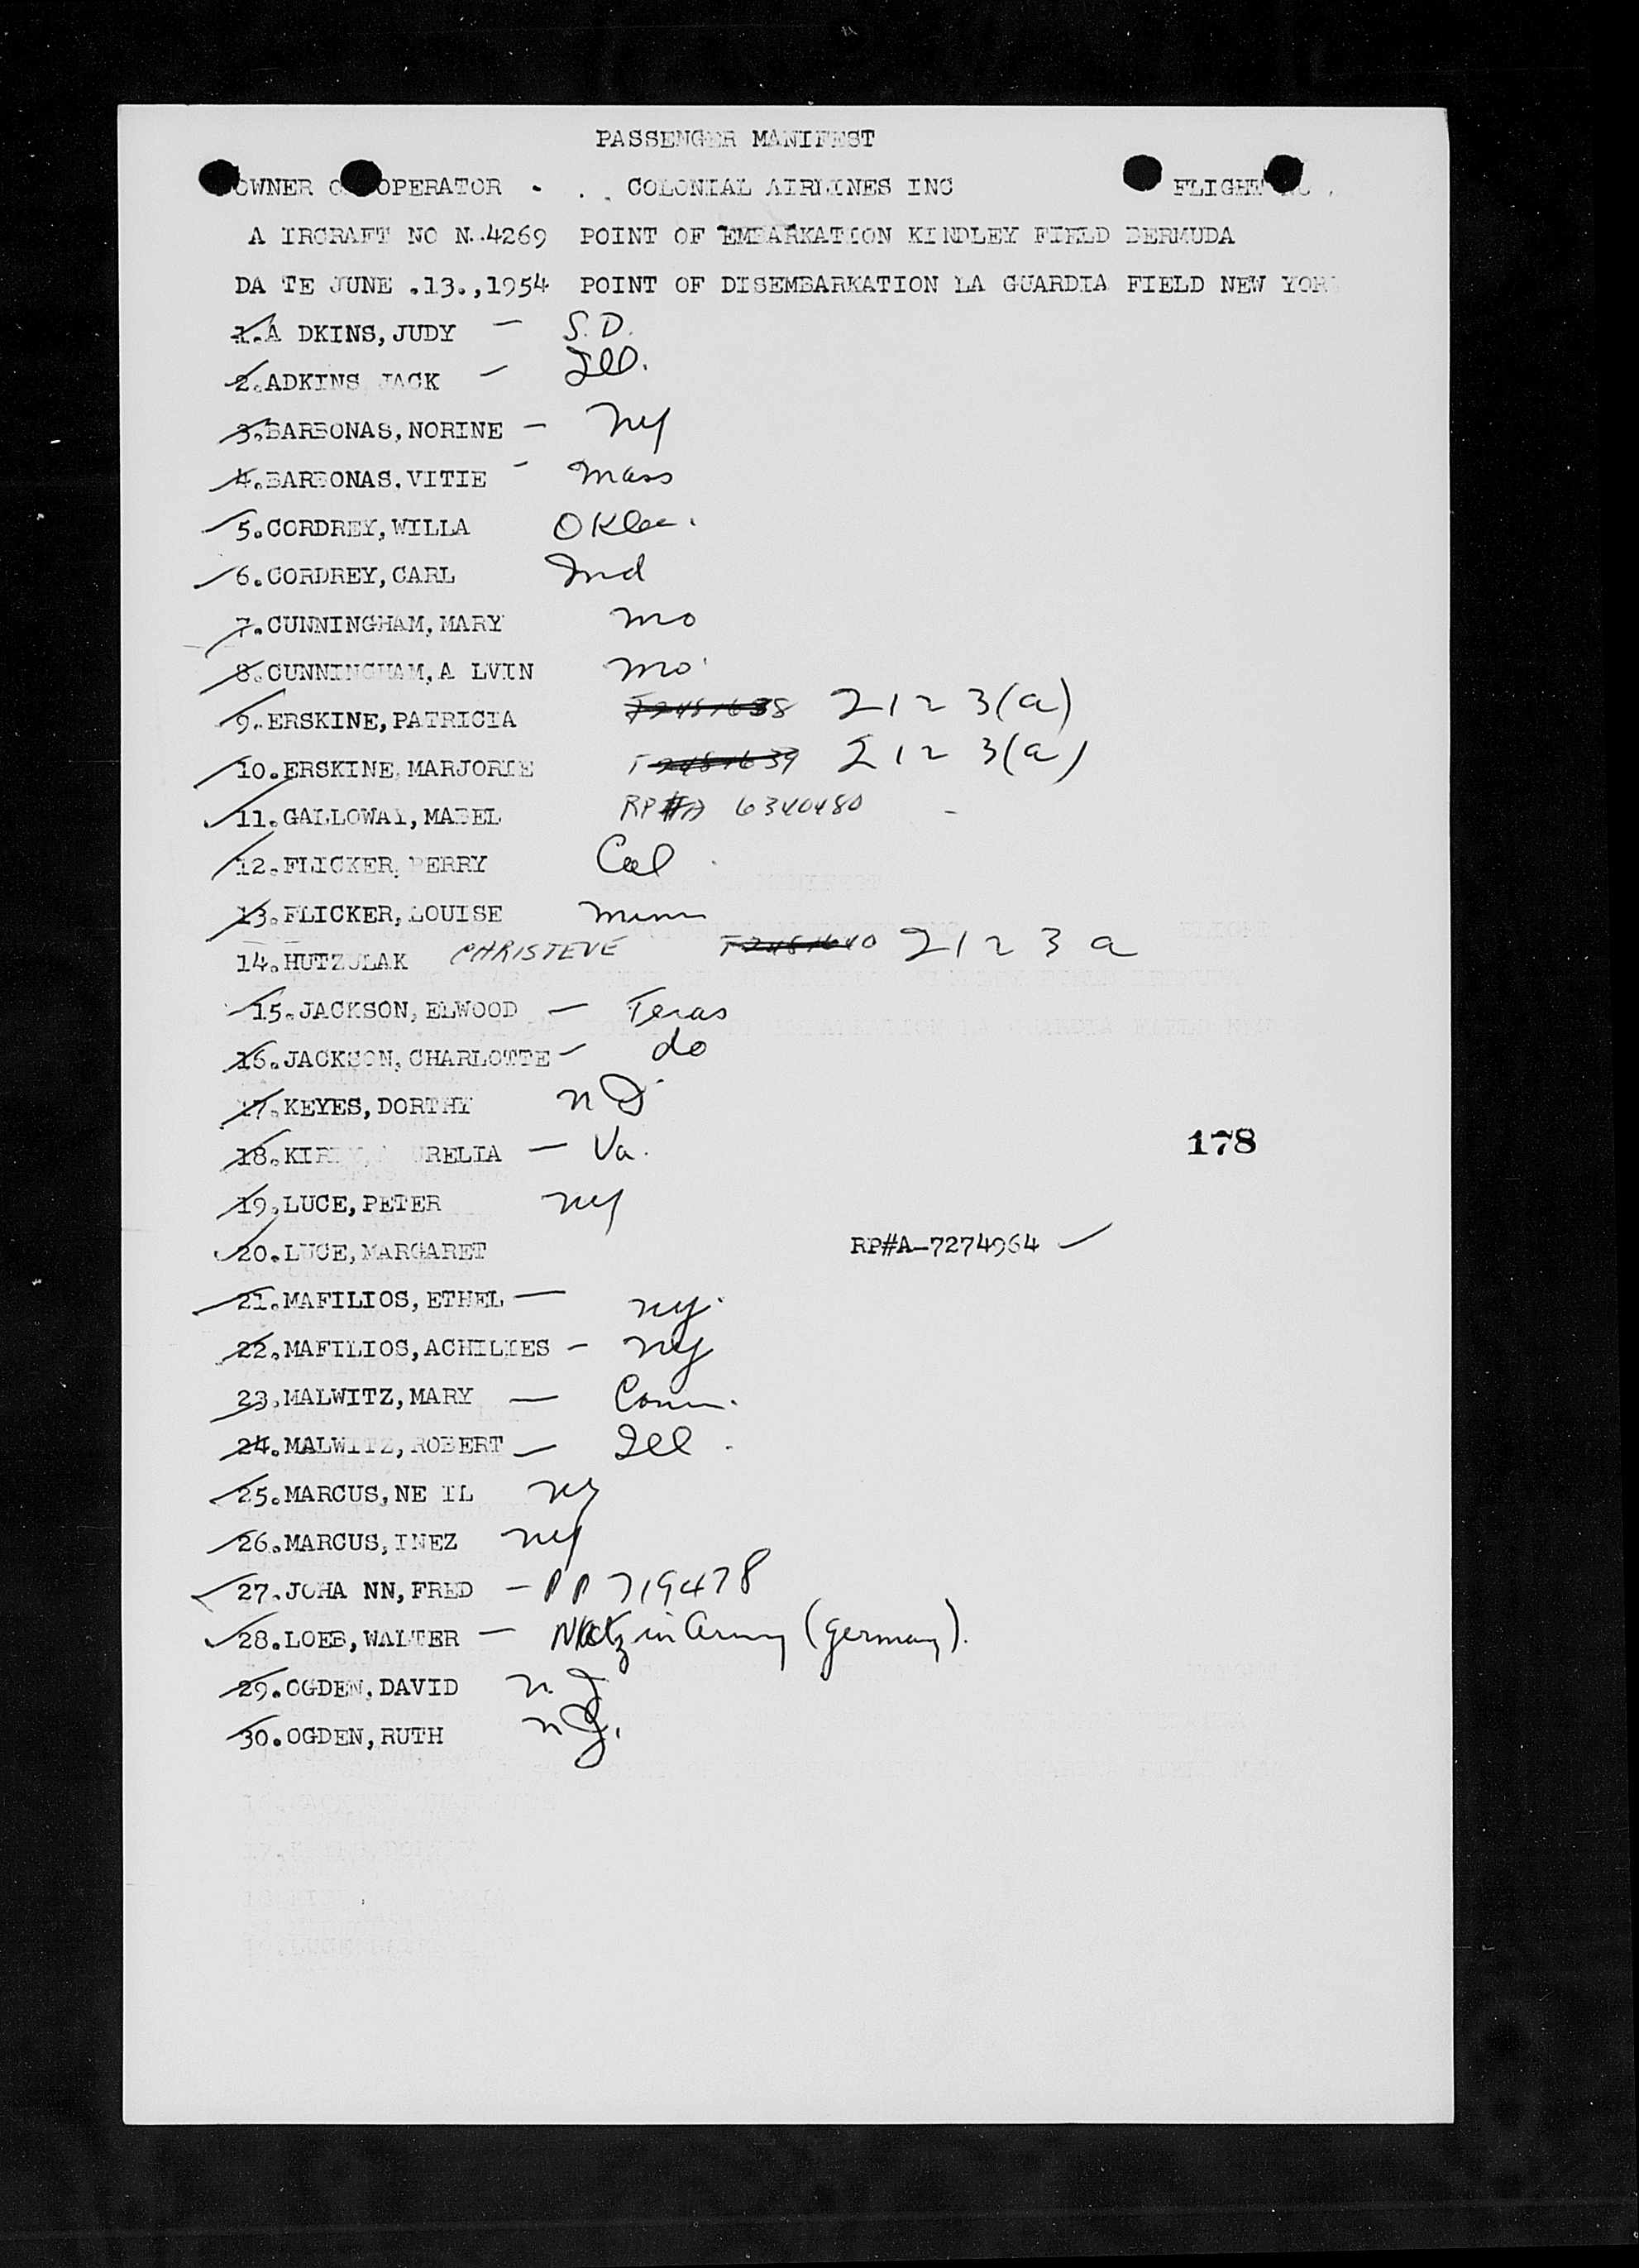 PASSENGER MANIFEST
OWNER OPERATOR - . . COLONIAL AIRLINES INC FLIGHT
A IRCRAFT NO N.4269 POINT OF EMBARKATION KINDLEY FIELD BERMUDA
DA TE JUNE .13.,1954 POINT OF DISEMBARKATION LA GUARDIA FIELD NEW YOR
1.A DKINS, JUDY — S.D.
2.ADKINS JACK — Ill.
3.BARBONAS, NORINE — NY
4.BARBONAS, VITIE - Mass
5.CORDREY, WILLA Okla.
6.CORDREY, CARL Ind
7.CUNNINGHAM, MARY Mo
8.CUNNINGHAM, A LVIN Mo
9.ERSKINE, PATRICIA 212 3(a)
10.ERSKINE, MARJORIE 212 3(a)
11.GALLOWAY, MABEL RP#A 6340480 -
12.FLICKER, PERRY Cal
13.FLICKER, LOUISE Minn
14.HUTZULAK CHRISTEVE 212 3 a
15.JACKSON, ELWOOD — Texas
16.JACKSON, CHARLOTTE — do
17.KEYES, DORTHY
18. — Va.
19.LUCE, PETER NY
20.LUCE, MARGARET RP#A-7274964 ✓
21.MAFILIOS, ETHEL — NY.
22.MAFILIOS, ACHILIES — NY
23.MALWITZ, MARY — Conn.
24.MALWITZ, ROBERT — Ill.
25.MARCUS, NE IL NY
26.MARCUS, INEZ NY
27.JOHA NN, FRED — PP 719478
28.LOEB, WALTER — in Army (Germany).
29.OGDEN, DAVID N J
30.OGDEN, RUTH N J.
178